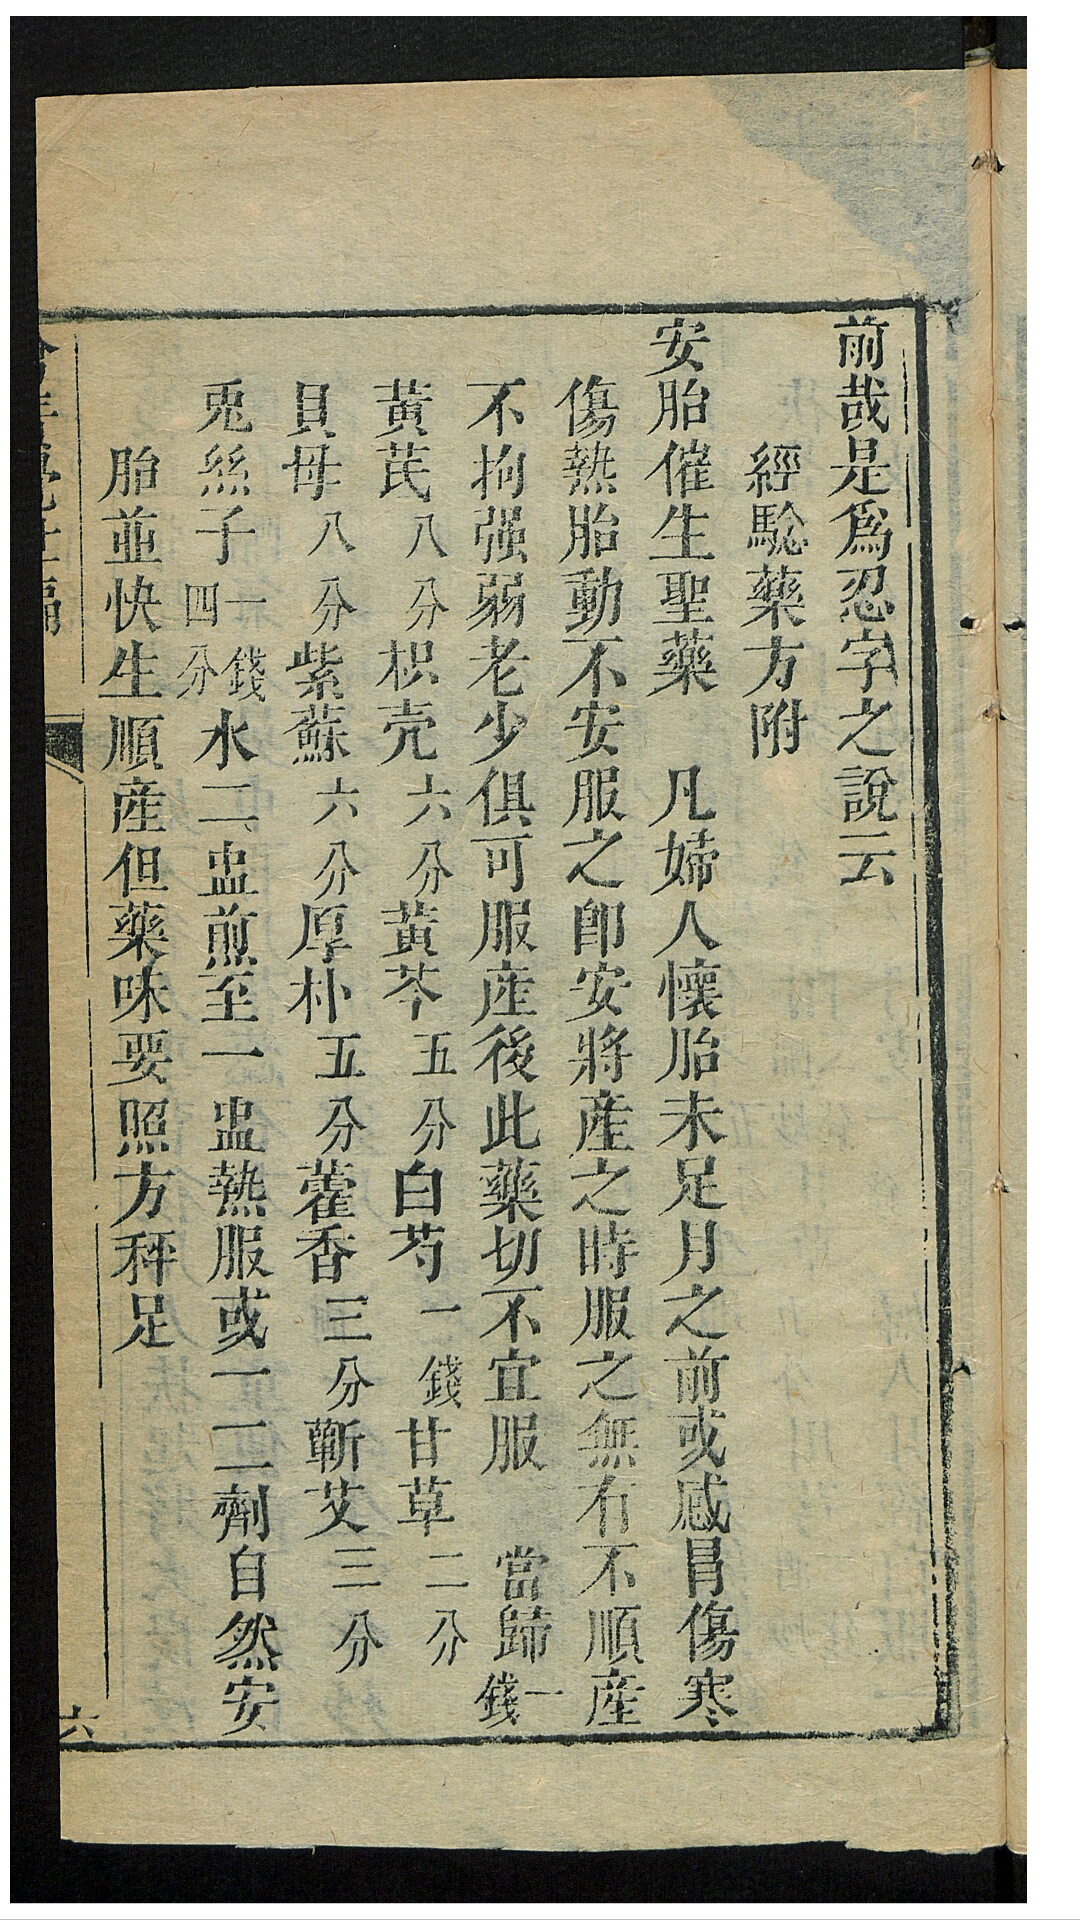 前哉是爲忍字之說云
經驗藥方附
安胎催生聖藥　凡婦人懷胎未足月之前或感冒傷寒
傷熱胎動不安服之卽安將產之時服之無有不順產
不拘强弱老少俱可服產後此藥切不宜服　當歸一錢
黃芪八分枳壳六分黃芩五分白芍一錢甘草二分
貝母八分紫蘇六分厚朴五分藿香三分蘄艾三分
兎絲子一錢四分水二盅煎至一盅熱服或一二劑自然安
胎並快生順產但藥味要照方秤足
六